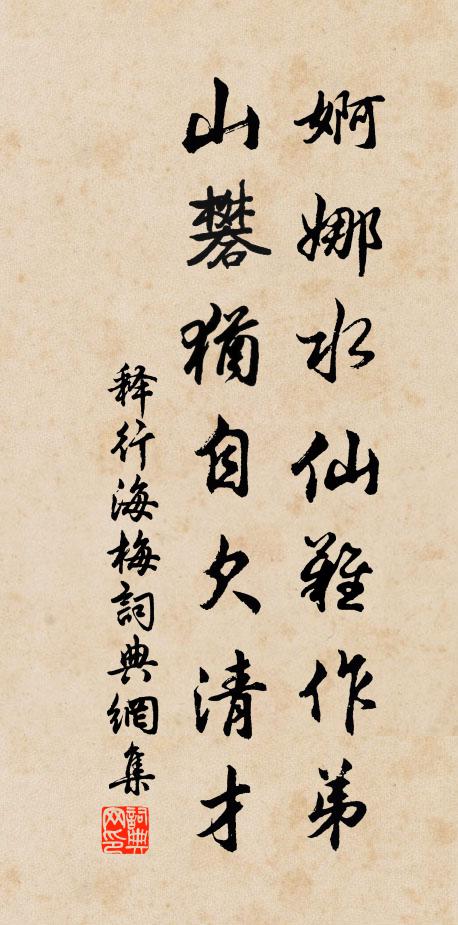 婀娜水仙難作弟
山礬猶自欠清才
释行海梅詞典網集
詞典网印